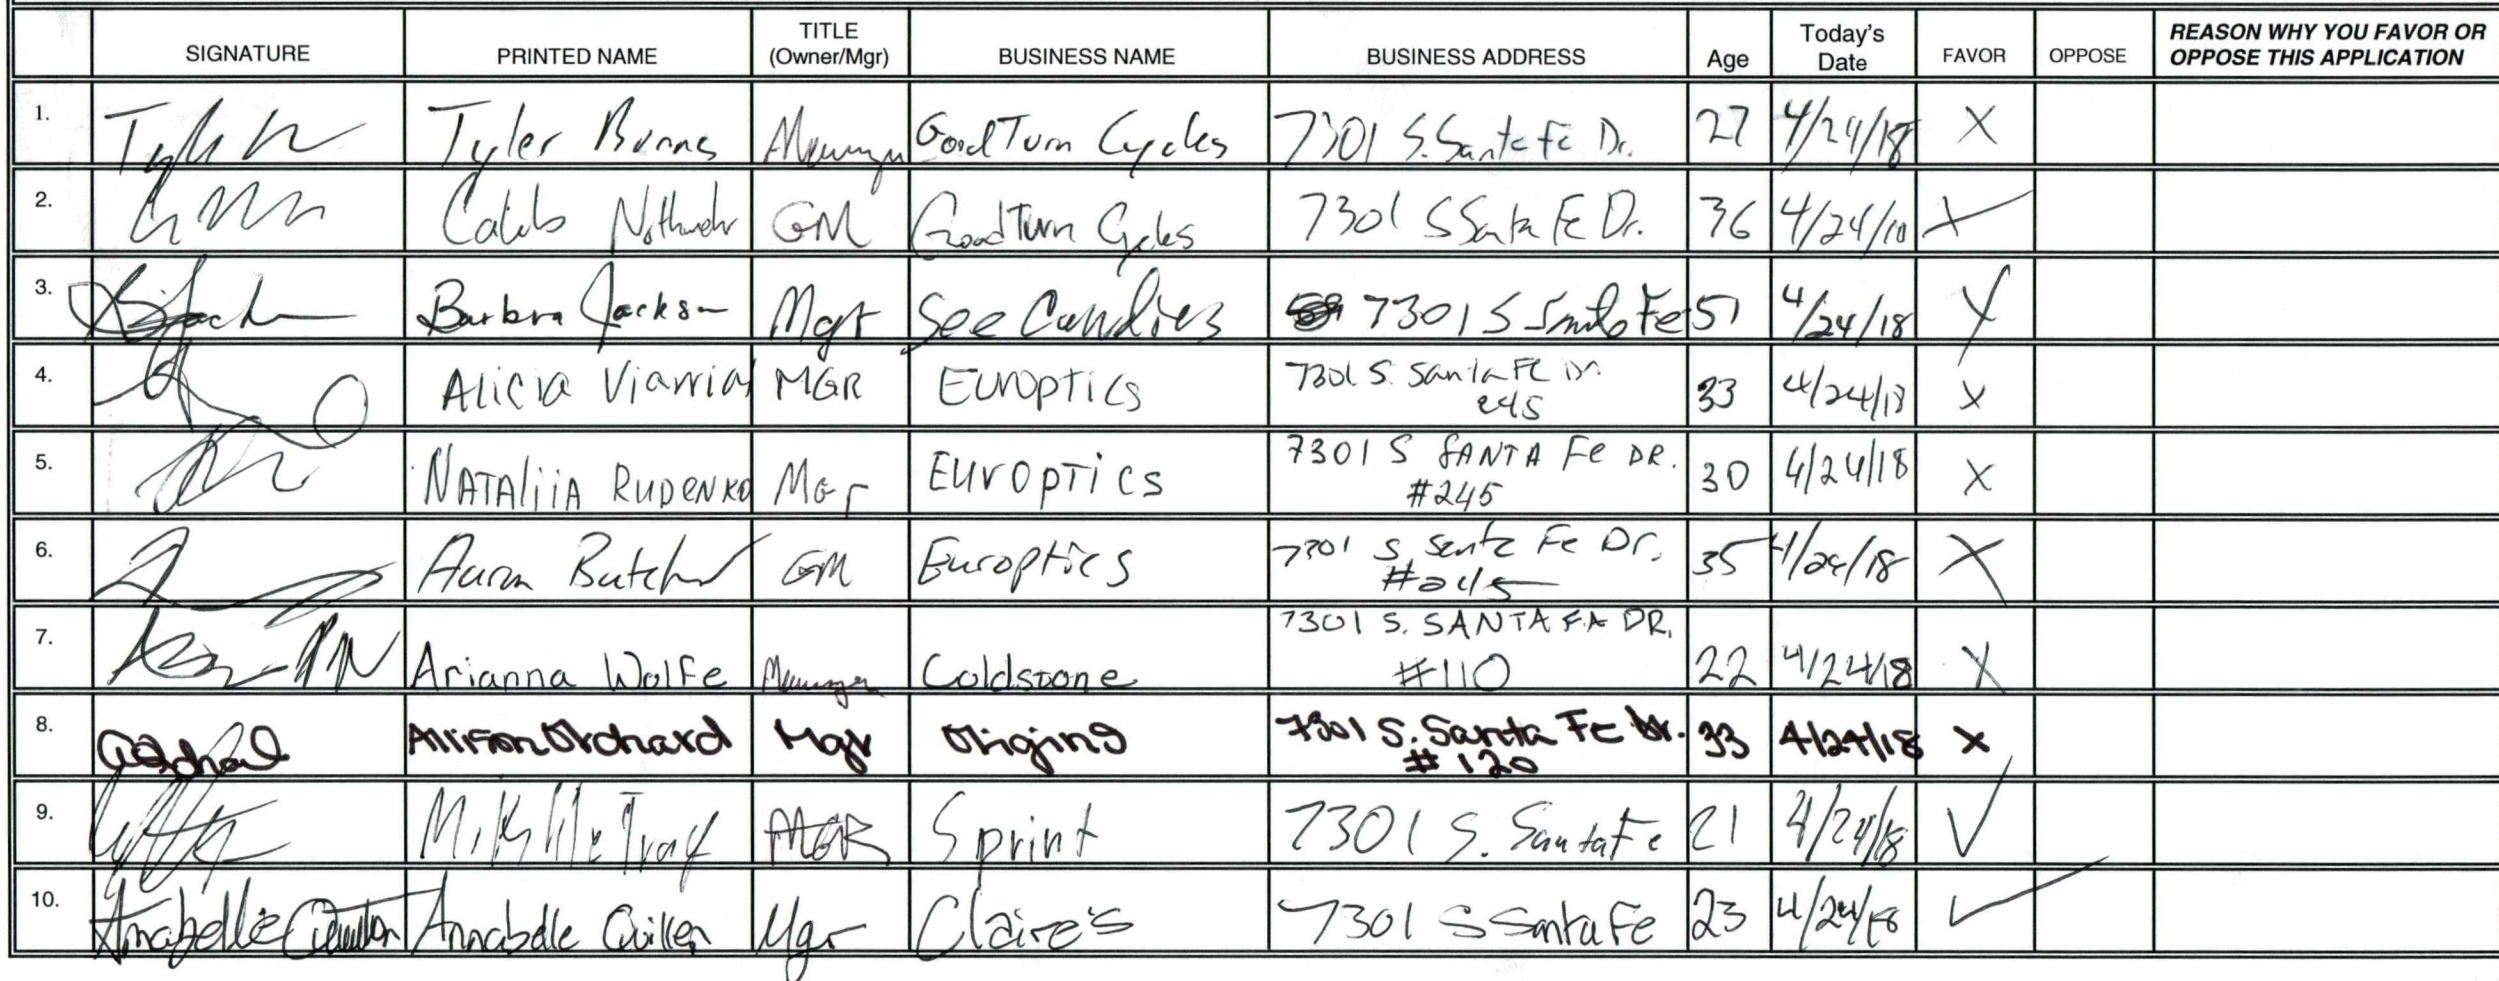 SIGNATURE PRINTED NAME TITLE (Owner/Mgr) BUSINESS NAME BUSINESS ADDRESS Age Today's Date FAVOR OPPOSE REASON WHY YOU FAVOR OR OPPOSE THIS APPLICATION
1. Tyler Burns Manager GoodTurn Cycles 7301 S. Santa Fe Dr. 27 4/24/18 X
2. Caleb GM GoodTurn Cycles 7301 S Santa Fe Dr. 36 4/24/18 X
3. Barbra Jackson Mgr See Candies 7301 S Santa Fe 51 4/24/18 X
4. Alicia Viarrial MGR Europtics 7301 S. Santa Fe Dr. 245 33 4/24/18 X
5. NATALIIA RUDENKO Mgr Europtics 7301 S SANTA Fe DR. #245 30 4/24/18 X
6. Aaron Butcher GM Europtics 7301 S. Santa Fe Dr. #245 35 4/24/18 X
7. Arianna Wolfe Manager Coldstone 7301 S. SANTA FA DR. #110 22 4/24/18 X
8. Allison Orchard Mgr Origins 7301 S. Santa Fe Dr. #120 33 4/24/18 X
9. MGR Sprint 7301 S. Santa Fe 21 4/24/18 ✓
10. Annabelle Quillen Annabelle Quillen Mgr Claire's 7301 S Santa Fe 23 4/24/18 ✓